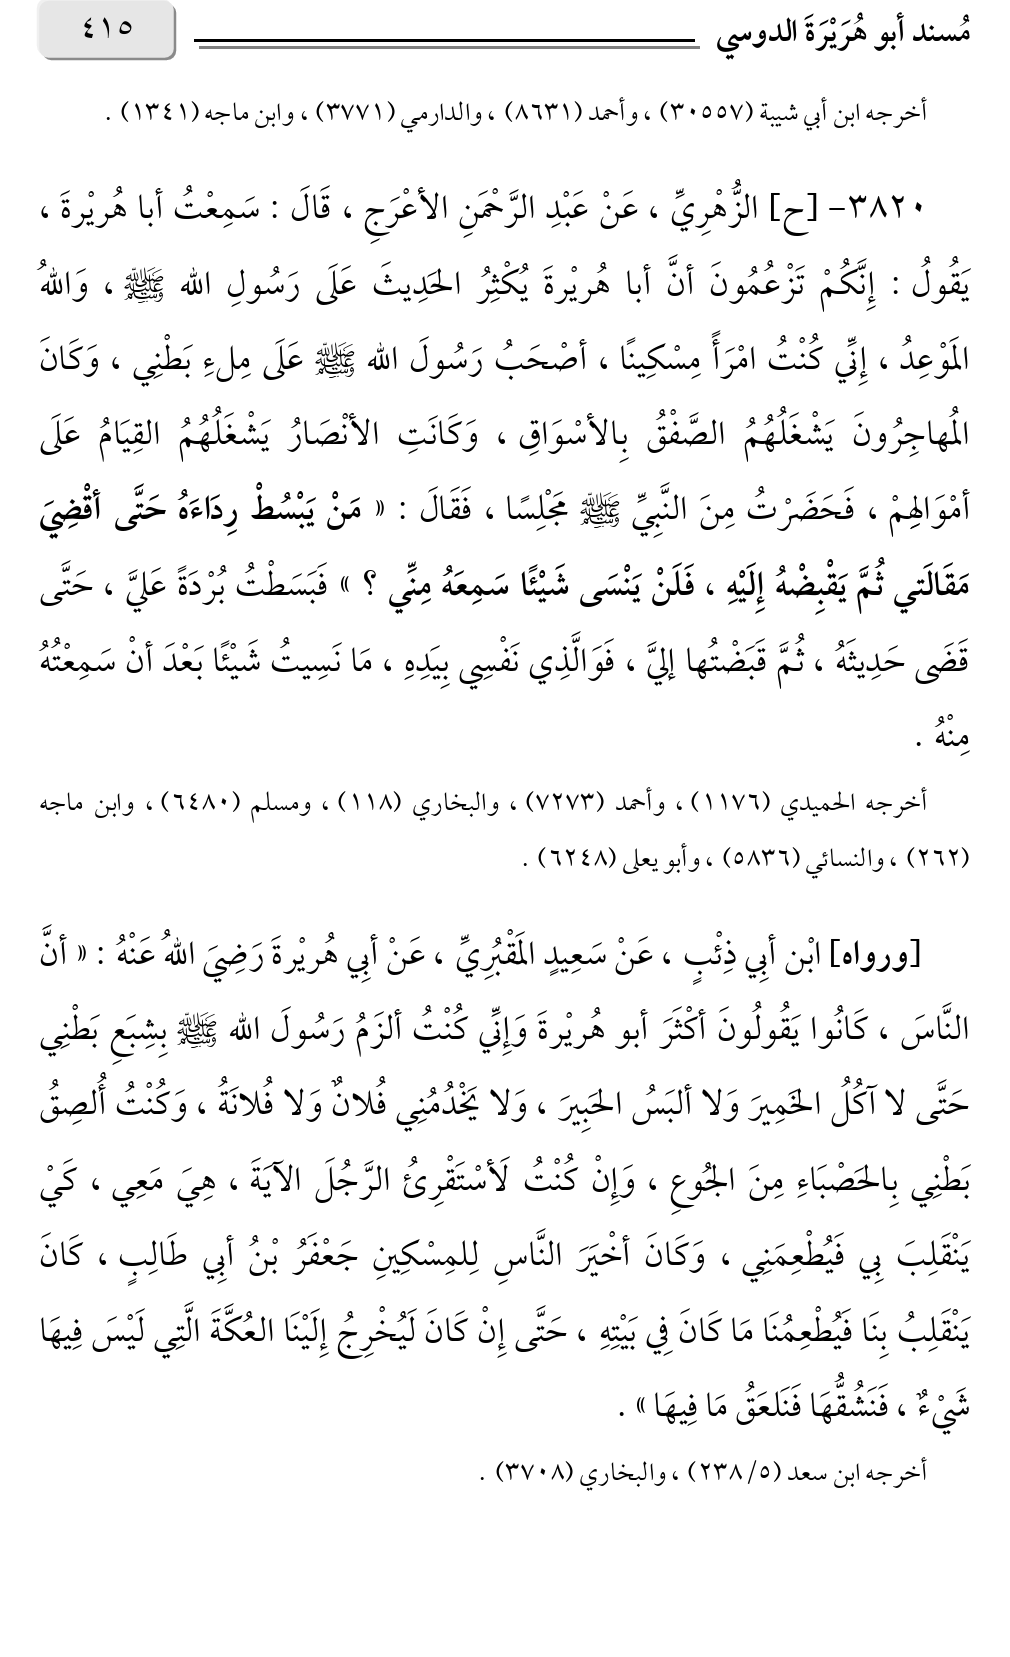 مُسند أبو هُرَيْرَةَ الدوسي ٤١٥
أخرجه ابن أبي شيبة (٣٠٥٥٧) ، وأحمد (٨٦٣١) ، والدارمي (٣٧٧١) ، وابن ماجه (١٣٤١) .
٣٨٢٠- [ح] الزُّهْرِيِّ ، عَنْ عَبْدِ الرَّحْمَنِ الأعْرَجِ ، قَالَ : سَمِعْتُ أبا هُرَيْرةَ ،
يَقُولُ : إِنَّكُمْ تَزْعُمُونَ أنَّ أبا هُرَيْرةَ يُكْثِرُ الحَدِيثَ عَلَى رَسُولِ الله ﷺ ، وَاللهُ
المَوْعِدُ ، إِنِّي كُنْتُ امْرَأً مِسْكِينًا ، أصْحَبُ رَسُولَ الله ﷺ عَلَى مِلءِ بَطْنِي ، وَكَانَ
المُهاجِرُونَ يَشْغَلُهُمُ الصَّفْقُ بِالأسْوَاقِ ، وَكَانَتِ الأنْصَارُ يَشْغَلُهُمُ القِيَامُ عَلَى
أمْوَالِهِمْ ، فَحَضَرْتُ مِنَ النَّبِيِّ ﷺ مَجْلِسًا ، فَقَالَ : « مَنْ يَبْسُطْ رِدَاءَهُ حَتَّى أقْضِيَ
مَقَالَتي ثُمَّ يَقْبِضْهُ إِلَيْهِ ، فَلَنْ يَنْسَى شَيْئًا سَمِعَهُ مِنِّي ؟ » فَبَسَطْتُ بُرْدَةً عَليَّ ، حَتَّى
قَضَى حَدِيثَهُ ، ثُمَّ قَبَضْتُها إليَّ ، فَوَالَّذِي نَفْسِي بِيَدِهِ ، مَا نَسِيتُ شَيْئًا بَعْدَ أنْ سَمِعْتُهُ
مِنْهُ .
أخرجه الحميدي (١١٧٦) ، وأحمد (٧٢٧٣) ، والبخاري (١١٨) ، ومسلم (٦٤٨٠) ، وابن ماجه
(٢٦٢) ، والنسائي (٥٨٣٦) ، وأبو يعلى (٦٢٤٨) .
[ورواه] ابْن أبِي ذِئْبٍ ، عَنْ سَعِيدٍ المَقْبُرِيِّ ، عَنْ أبِي هُرَيْرةَ رَضِيَ اللهُ عَنْهُ : « أنَّ
النَّاسَ ، كَانُوا يَقُولُونَ أكْثَرَ أبو هُرَيْرةَ وَإِنِّي كُنْتُ ألزَمُ رَسُولَ الله ﷺ بِشِبَعِ بَطْنِي
حَتَّى لا آكُلُ الخَمِيرَ وَلا ألبَسُ الحَبِيرَ ، وَلا يَخْدُمُنِي فُلانٌ وَلا فُلانَةُ ، وَكُنْتُ أُلصِقُ
بَطْنِي بِالحَصْبَاءِ مِنَ الجُوعِ ، وَإِنْ كُنْتُ لَأسْتَقْرِئُ الرَّجُلَ الآيَةَ ، هِيَ مَعِي ، كَيْ
يَنْقَلِبَ بِي فَيُطْعِمَنِي ، وَكَانَ أخْيَرَ النَّاسِ لِلمِسْكِينِ جَعْفَرُ بْنُ أبِي طَالِبٍ ، كَانَ
يَنْقَلِبُ بِنَا فَيُطْعِمُنَا مَا كَانَ فِي بَيْتِهِ ، حَتَّى إِنْ كَانَ لَيُخْرِجُ إِلَيْنَا العُكَّةَ الَّتِي لَيْسَ فِيهَا
شَيْءٌ ، فَنَشُقُّهَا فَنَلعَقُ مَا فِيهَا » .
أخرجه ابن سعد (٥/ ٢٣٨) ، والبخاري (٣٧٠٨) .